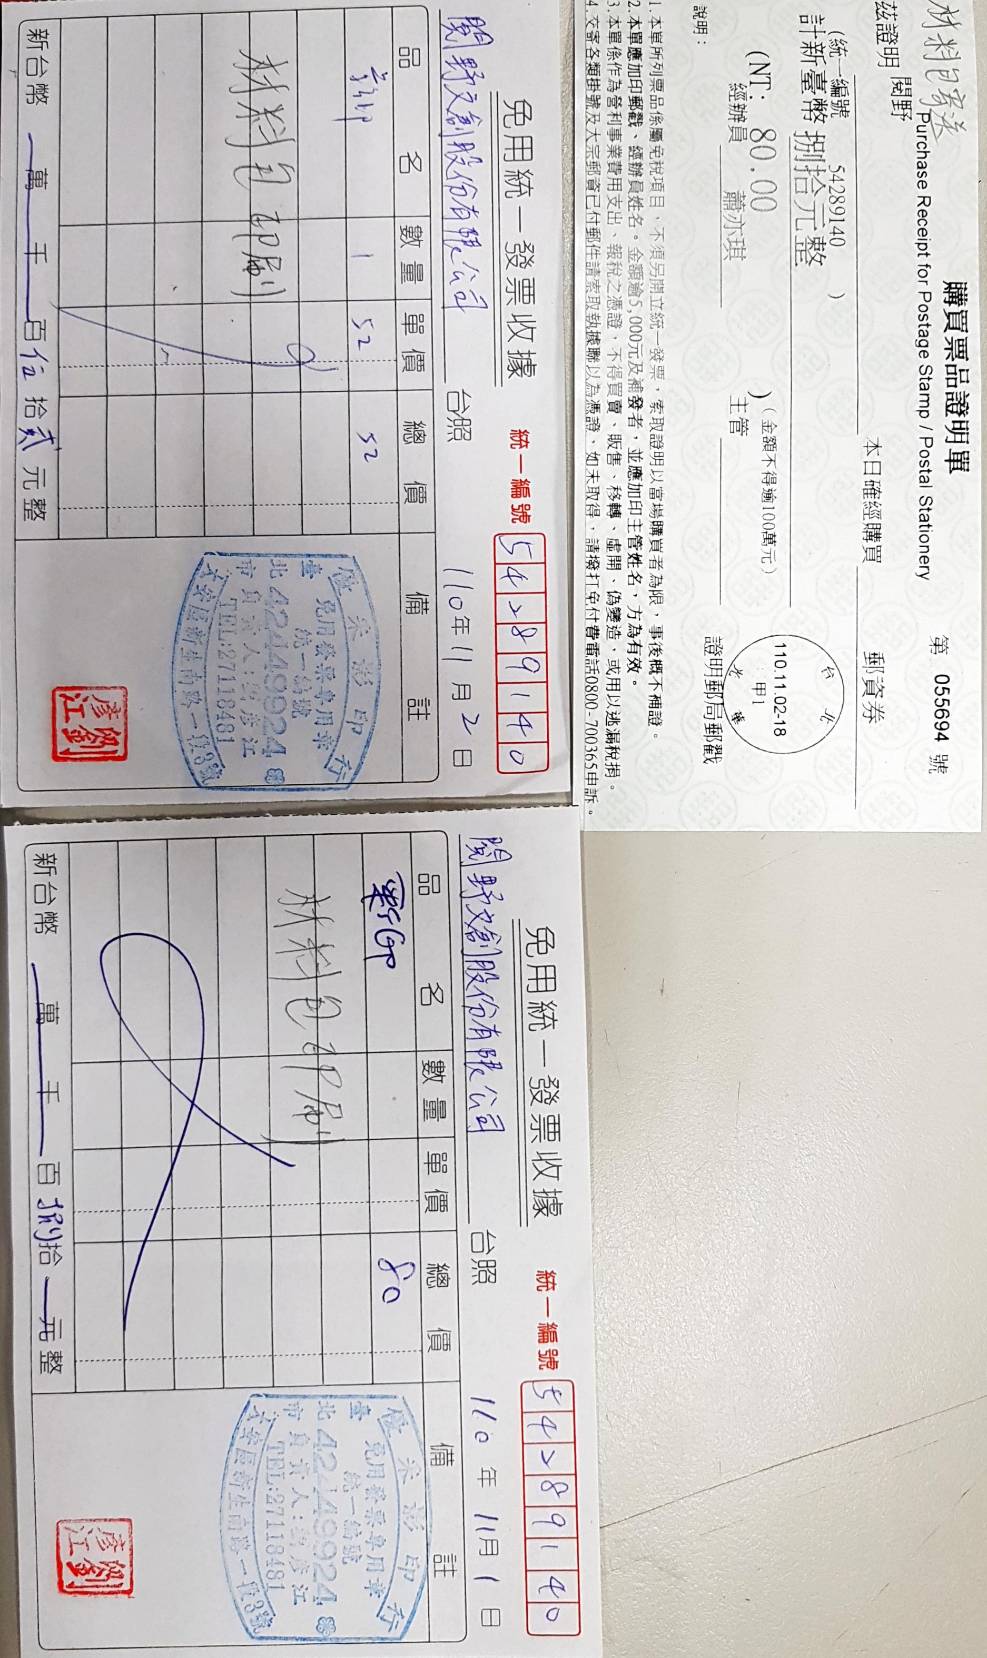 材料包寄送
購買票品證明單
Purchase Receipt for Postage Stamp / Postal Stationery
第 055694 號
茲證明 閱野
本日確經購買
郵資券
(統一編號 54289140 )
計新臺幣 捌拾元整
(NT: 80.00 )(金額不得逾100萬元)
經辦員 蕭亦琪
主管
台北
110.11.02-18
甲1
證明郵局郵戳
說明:
1.本單所列票品係屬免稅項目,不須另開立統一發票,索取證明以當場購買者為限,事後概不補證。
2.本單應加印郵戳、經辦員姓名。金額逾5,000元及補發者,並應加印主管姓名,方為有效。
3.本單係作為營利事業費用支出、報稅之憑證,不得買賣、販售、移轉、虛開、偽變造,或用以逃漏稅捐。
4.交寄各類掛號及大宗郵資已付郵件請索取執據聯以為憑證,如未取得,請撥打免付費電話0800-700365申訴。
免用統一發票收據
統一編號 54289140
閱野文創股份有限公司 台照
110年11月2日
品名 數量 單價 總價 備註
影印 1 52 52
材料包印刷
優采影印行
免用發票專用章
統一編號
臺北市
42449924
負責人:劉彥江
TEL:27118481
大安區新生南路一段3號
劉彥江
新台幣 萬 千 百 伍拾貳元整
免用統一發票收據
統一編號 54289140
閱野文創股份有限公司 台照
110年11月1日
品名 數量 單價 總價 備註
80
材料包印刷
優采影印行
免用發票專用章
統一編號
臺北市
42449924
負責人:劉彥江
TEL:27118481
大安區新生南路一段3號
劉彥江
新台幣 萬 千 百 捌拾 元整